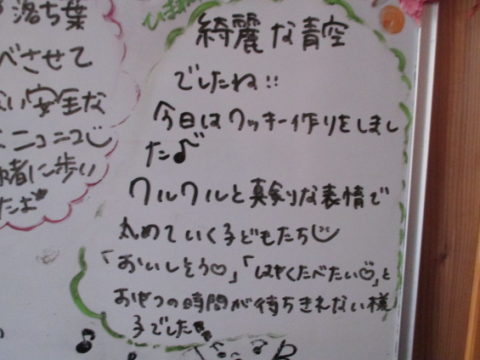 落ち葉
べさせて
い安全な
ニコニコ
緒に歩い
たよ
ひま
綺麗な青空
でしたね!!
今日はクッキー作りをしまし
た♪
クルクルと真剣な表情で
丸めていく子どもたち
「おいしそう♡」「はやくたべたい♡」と
おやつの時間が待ちきれない様
子でした